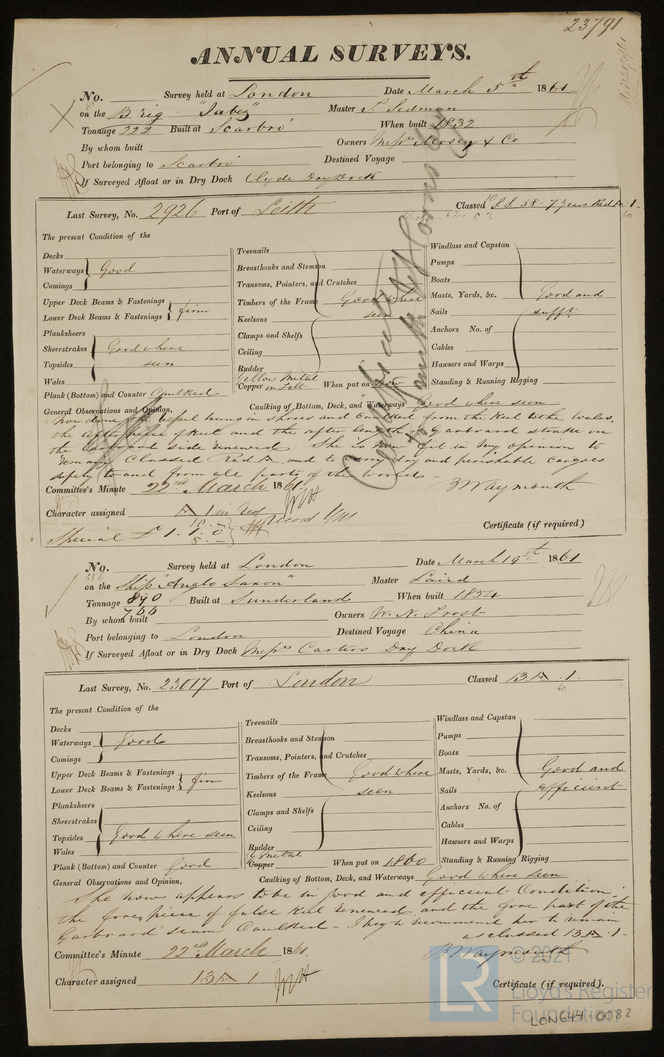 23791
ANNUAL SURVEYS.
No. Survey held at London Date March 5th 1861
on the Brig "Jabez" Master S. Sedman
Tonnage 222 Built at Scarbro' When built 1832
By whom built Owners Messrs Mosey & Co
Port belonging to Scarbro' Destined Voyage
If Surveyed Afloat or in Dry Dock Clyde Dry Dock
Last Survey, No. 2926 Port of Leith Classed 7 years Red A.1.
The present Condition of the
Decks
Waterways Good
Comings
Upper Deck Beams & Fastenings
Lower Deck Beams & Fastenings firm
Planksheers
Sheerstrakes Good where
Topsides seen
Wales
Plank (Bottom) and Counter Caulked
Treenails
Breasthooks and Stemson
Transoms, Pointers, and Crutches
Timbers of the Frame Good where
Keelsons seen
Clamps and Shelfs
Ceiling
Rudder
Yellow Metal
Copper on Felt When put on now
Windlass and Capstan
Pumps
Boats
Masts, Yards, &c. Good and
Sails sufft
Anchors No. of
Cables
Hawsers and Warps
Standing & Running Rigging
Caulking of Bottom, Deck, and Waterways Good where seen
General Observations and Opinion,
and Caulked from the Keel to the Wales,
the after piece of keel and the after length of Garboard strake on
the side renewed. She is now fit in my opinion to
remain Classed Red A and to carry dry and perishable cargoes
safely to and from all parts of the world
B Waymouth
Committee's Minute 22nd March 1861
Character assigned A 1 in red
Special £1.1.0
Certificate (if required)
No. Survey held at London Date March 19th 1861
on the Ship "Anglo Saxon" Master Laird
Tonnage 890 Built at Sunderland When built 1854
766
By whom built Owners W. N. Frost
Port belonging to London Destined Voyage China
If Surveyed Afloat or in Dry Dock Messrs Carters Dry Dock
Last Survey, No. 23017 Port of London Classed 13 A.1.
60
The present Condition of the
Decks
Waterways Good
Comings
Upper Deck Beams & Fastenings
Lower Deck Beams & Fastenings firm
Planksheers
Sheerstrakes
Topsides Good where seen
Wales
Plank (Bottom) and Counter Good
Treenails
Breasthooks and Stemson
Transoms, Pointers, and Crutches
Timbers of the Frame Good where
Keelsons seen
Clamps and Shelfs
Ceiling
Rudder
Y Metal
Copper When put on 1860
Windlass and Capstan
Pumps
Boats
Masts, Yards, &c. Good and
Sails efficient
Anchors No. of
Cables
Hawsers and Warps
Standing & Running Rigging
General Observations and Opinion, Caulking of Bottom, Deck, and Waterways Good where seen
She now appears to be in good and efficient Condition.
the forepiece of false keel renewed and the fore part of the
Garboard seam Caulked - I beg to recommend her to remain
as classed 13 A.1.
Committee's Minute 22nd March 1861. B. Waymouth
Character assigned 13 A 1
Certificate (if required).
LR © 2021
Lloyd's Register
Foundation
LON644-0082